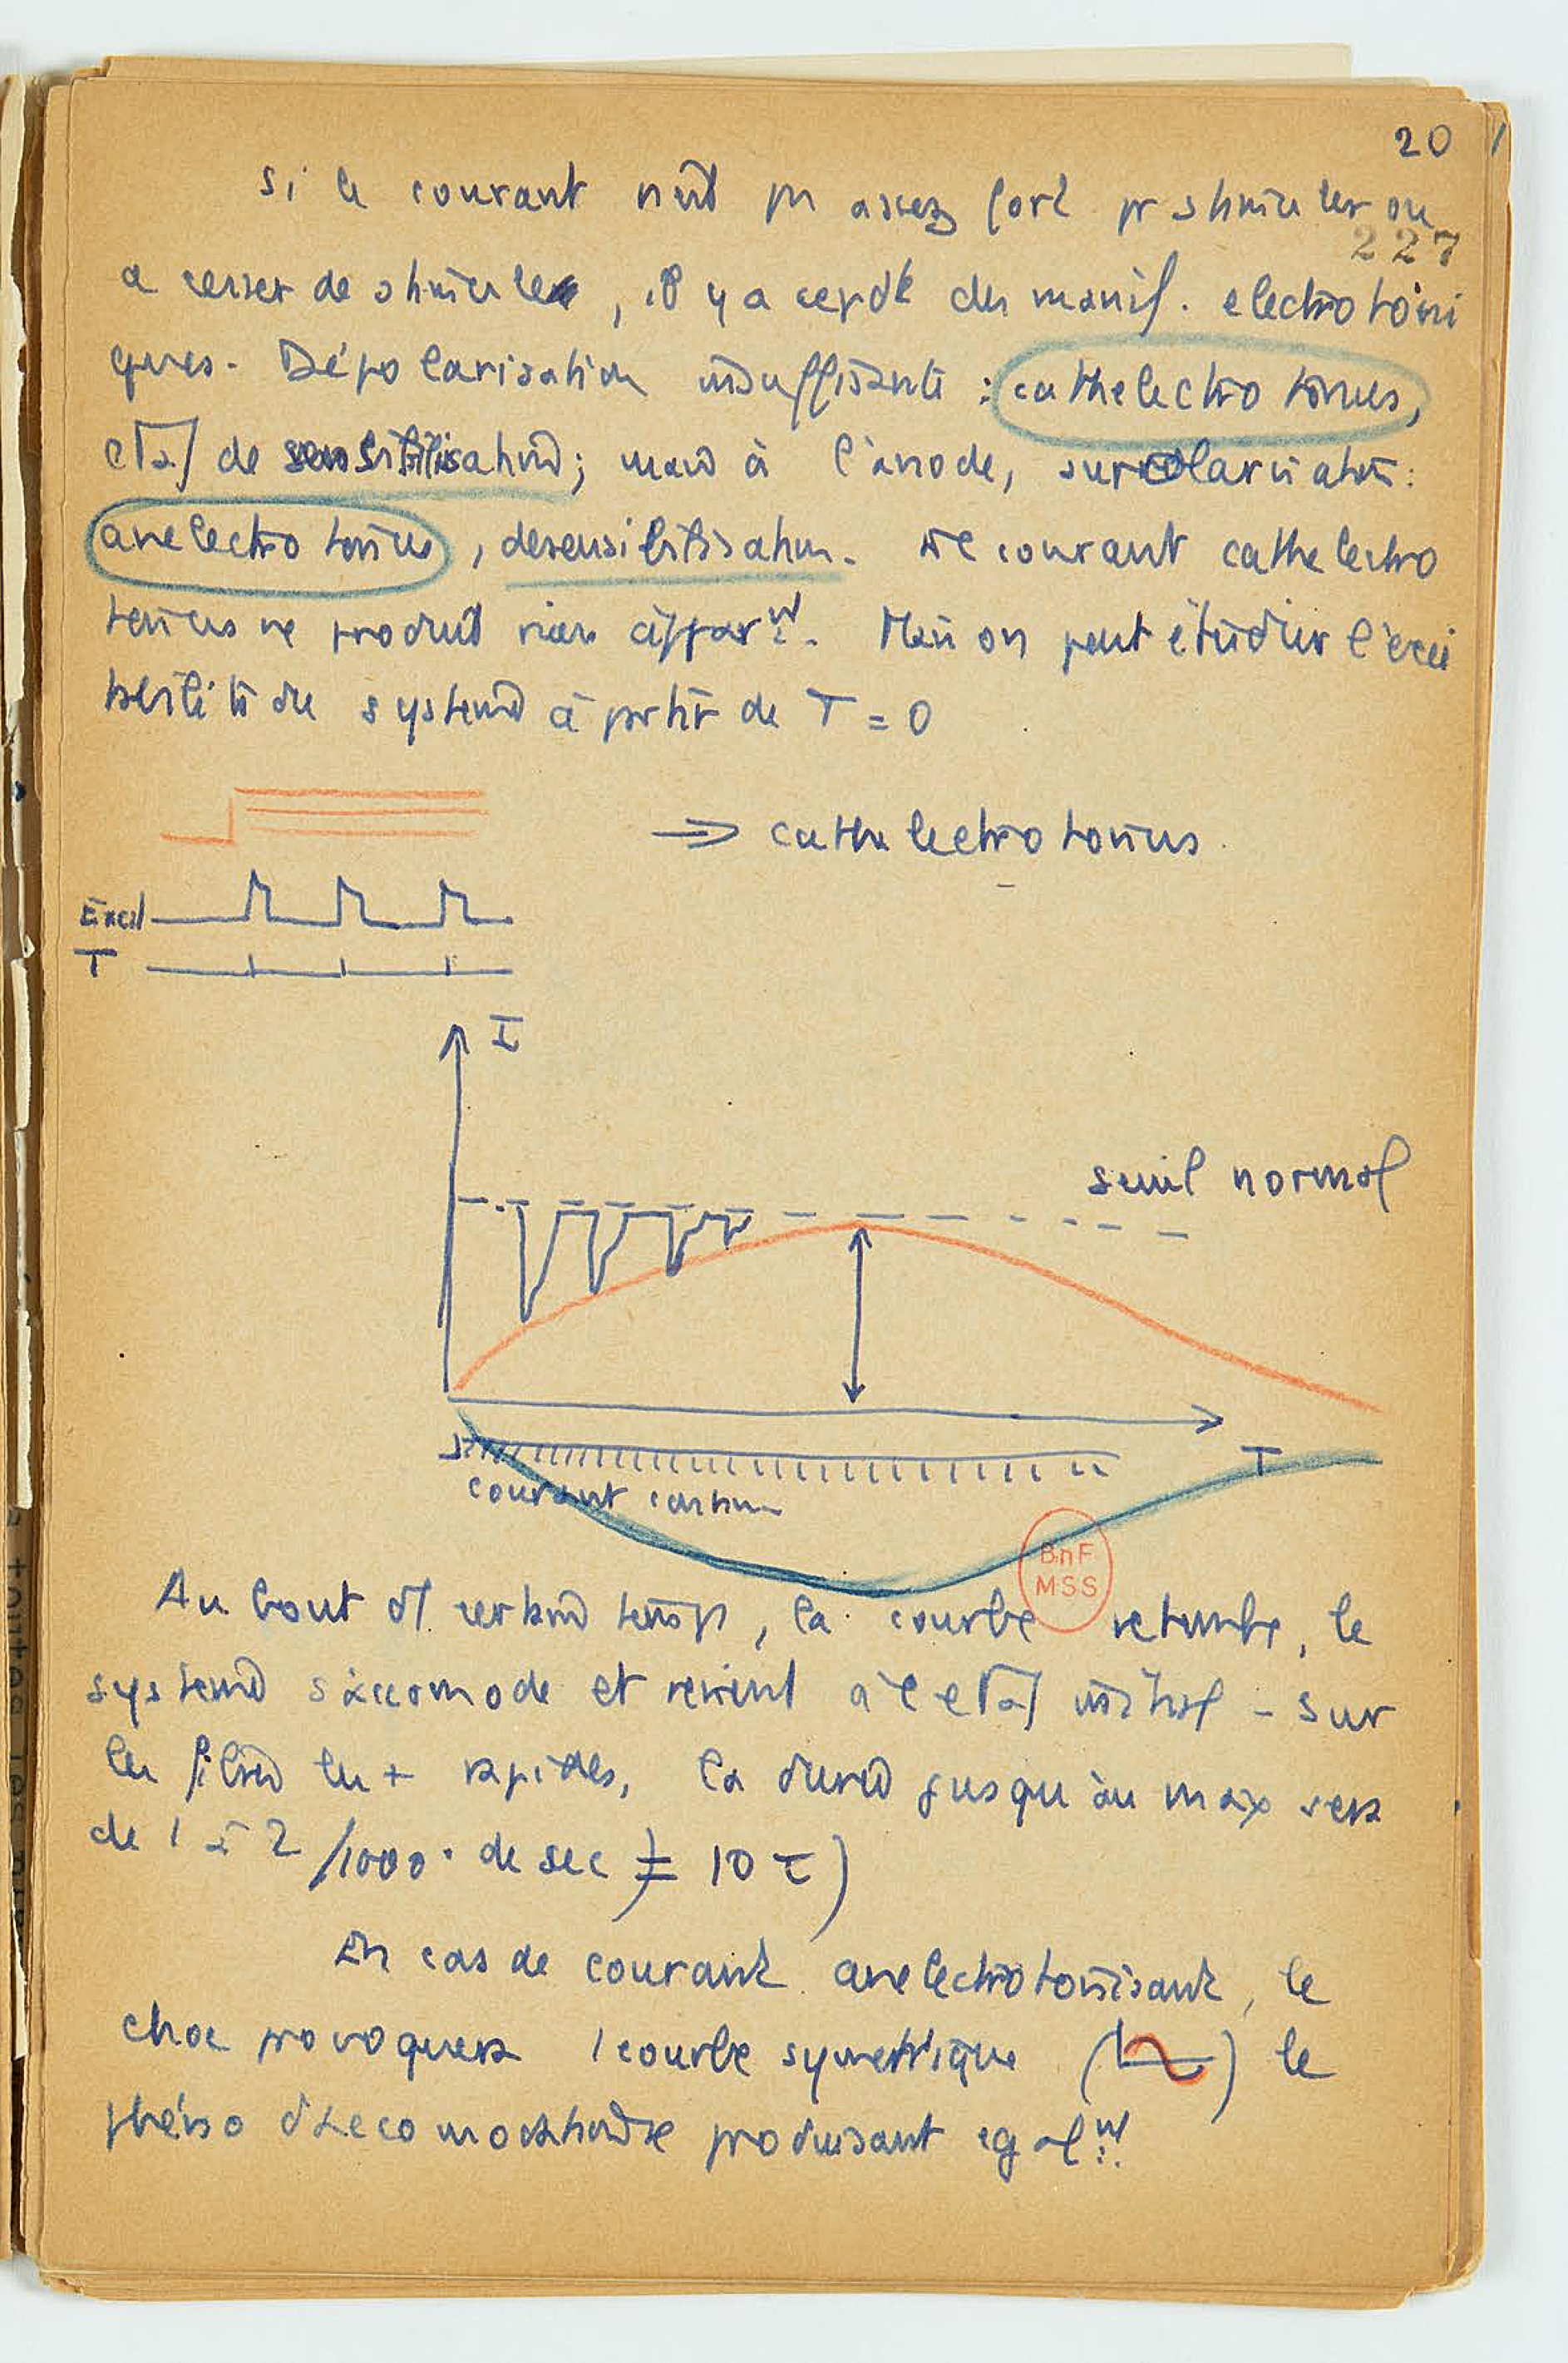 20
si le courant n'est pas assez fort pr stimuler ou
227
a cesser de stimuler, il y a cepdt des manif. electrotoni
ques. Dépolarisation insuffisante : cathelectrotonus,
état de sensibilisation; mais à l'anode, surpolarisation:
anelectrotonus, desensibilisation. Le courant cathelectro
tonus ne produit rien appart. Mais on peut étudier l'exci
tabilité du système à partir de T = 0
⇒ cathelectrotonus.
Excit
T
I
seuil normal
T
courant continu
BnF
MSS
Au bout d'1 certain temps, la courbe retombe, le
système s'accomode et revient à l'état initial - Sur
les fibres les + rapides, la durée jusqu'au max sera
de 1 à 2 /1000° de sec (= 10 τ)
En cas de courant anelectrotonisant, le
choc provoquera 1 courbe symétrique ( ) le
phéno d'accomodation se produisant egalt.